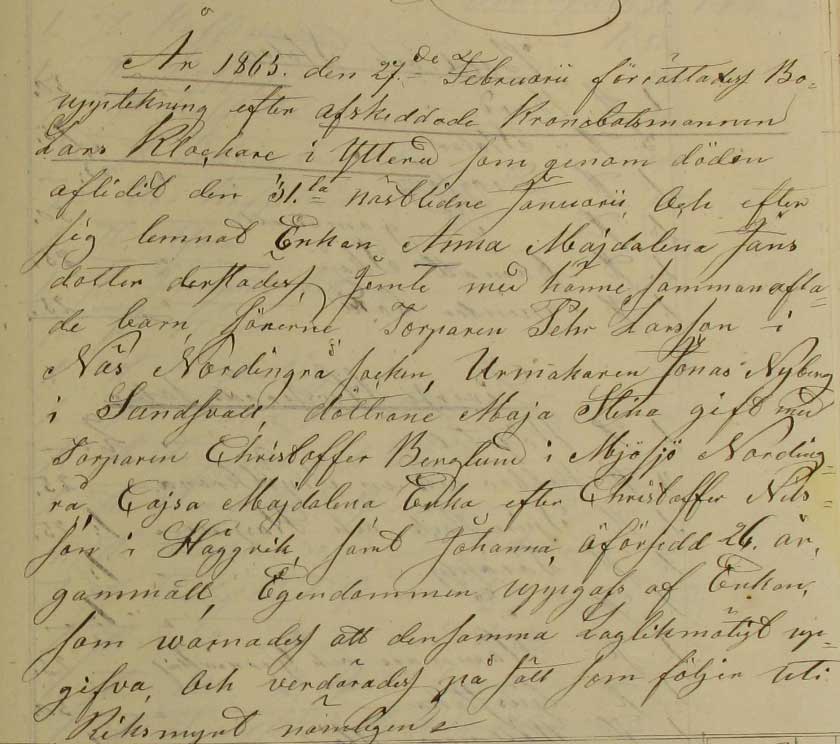 År 1865. den 27.de Februarii förrättades Bo-
uppteckning efter afskeddade Kronobåtsmannen
Lars Klockare i Ytterå som genom döden
aflidit den 31.ta näst lidne Januarii, Och efter
sig lemnat Enkan Anna Majdalena Jäns
dotter derstädes, Jemte med hänne sammanafla-
de barn, sönerne Torparen Pehr Larsson i
Näs Nordingrå socken, Urmakaren Jonas Nyberg
i Sundsvall, döttrane Maja Stina gift med
Torparen Christoffer Berglund i Mjösjö Nording-
rå, Cajsa Majdalena Enka efter Christoffer Nils-
son i Häggvik, samt Johanna, oförsedd 26. år,
gammall, Egendommen uppgafs af Enkan,
som warnades att densamma Lagliktmätigt up-
gifva, Och verdärades på sätt som följer uti
Riksmynt nämligen